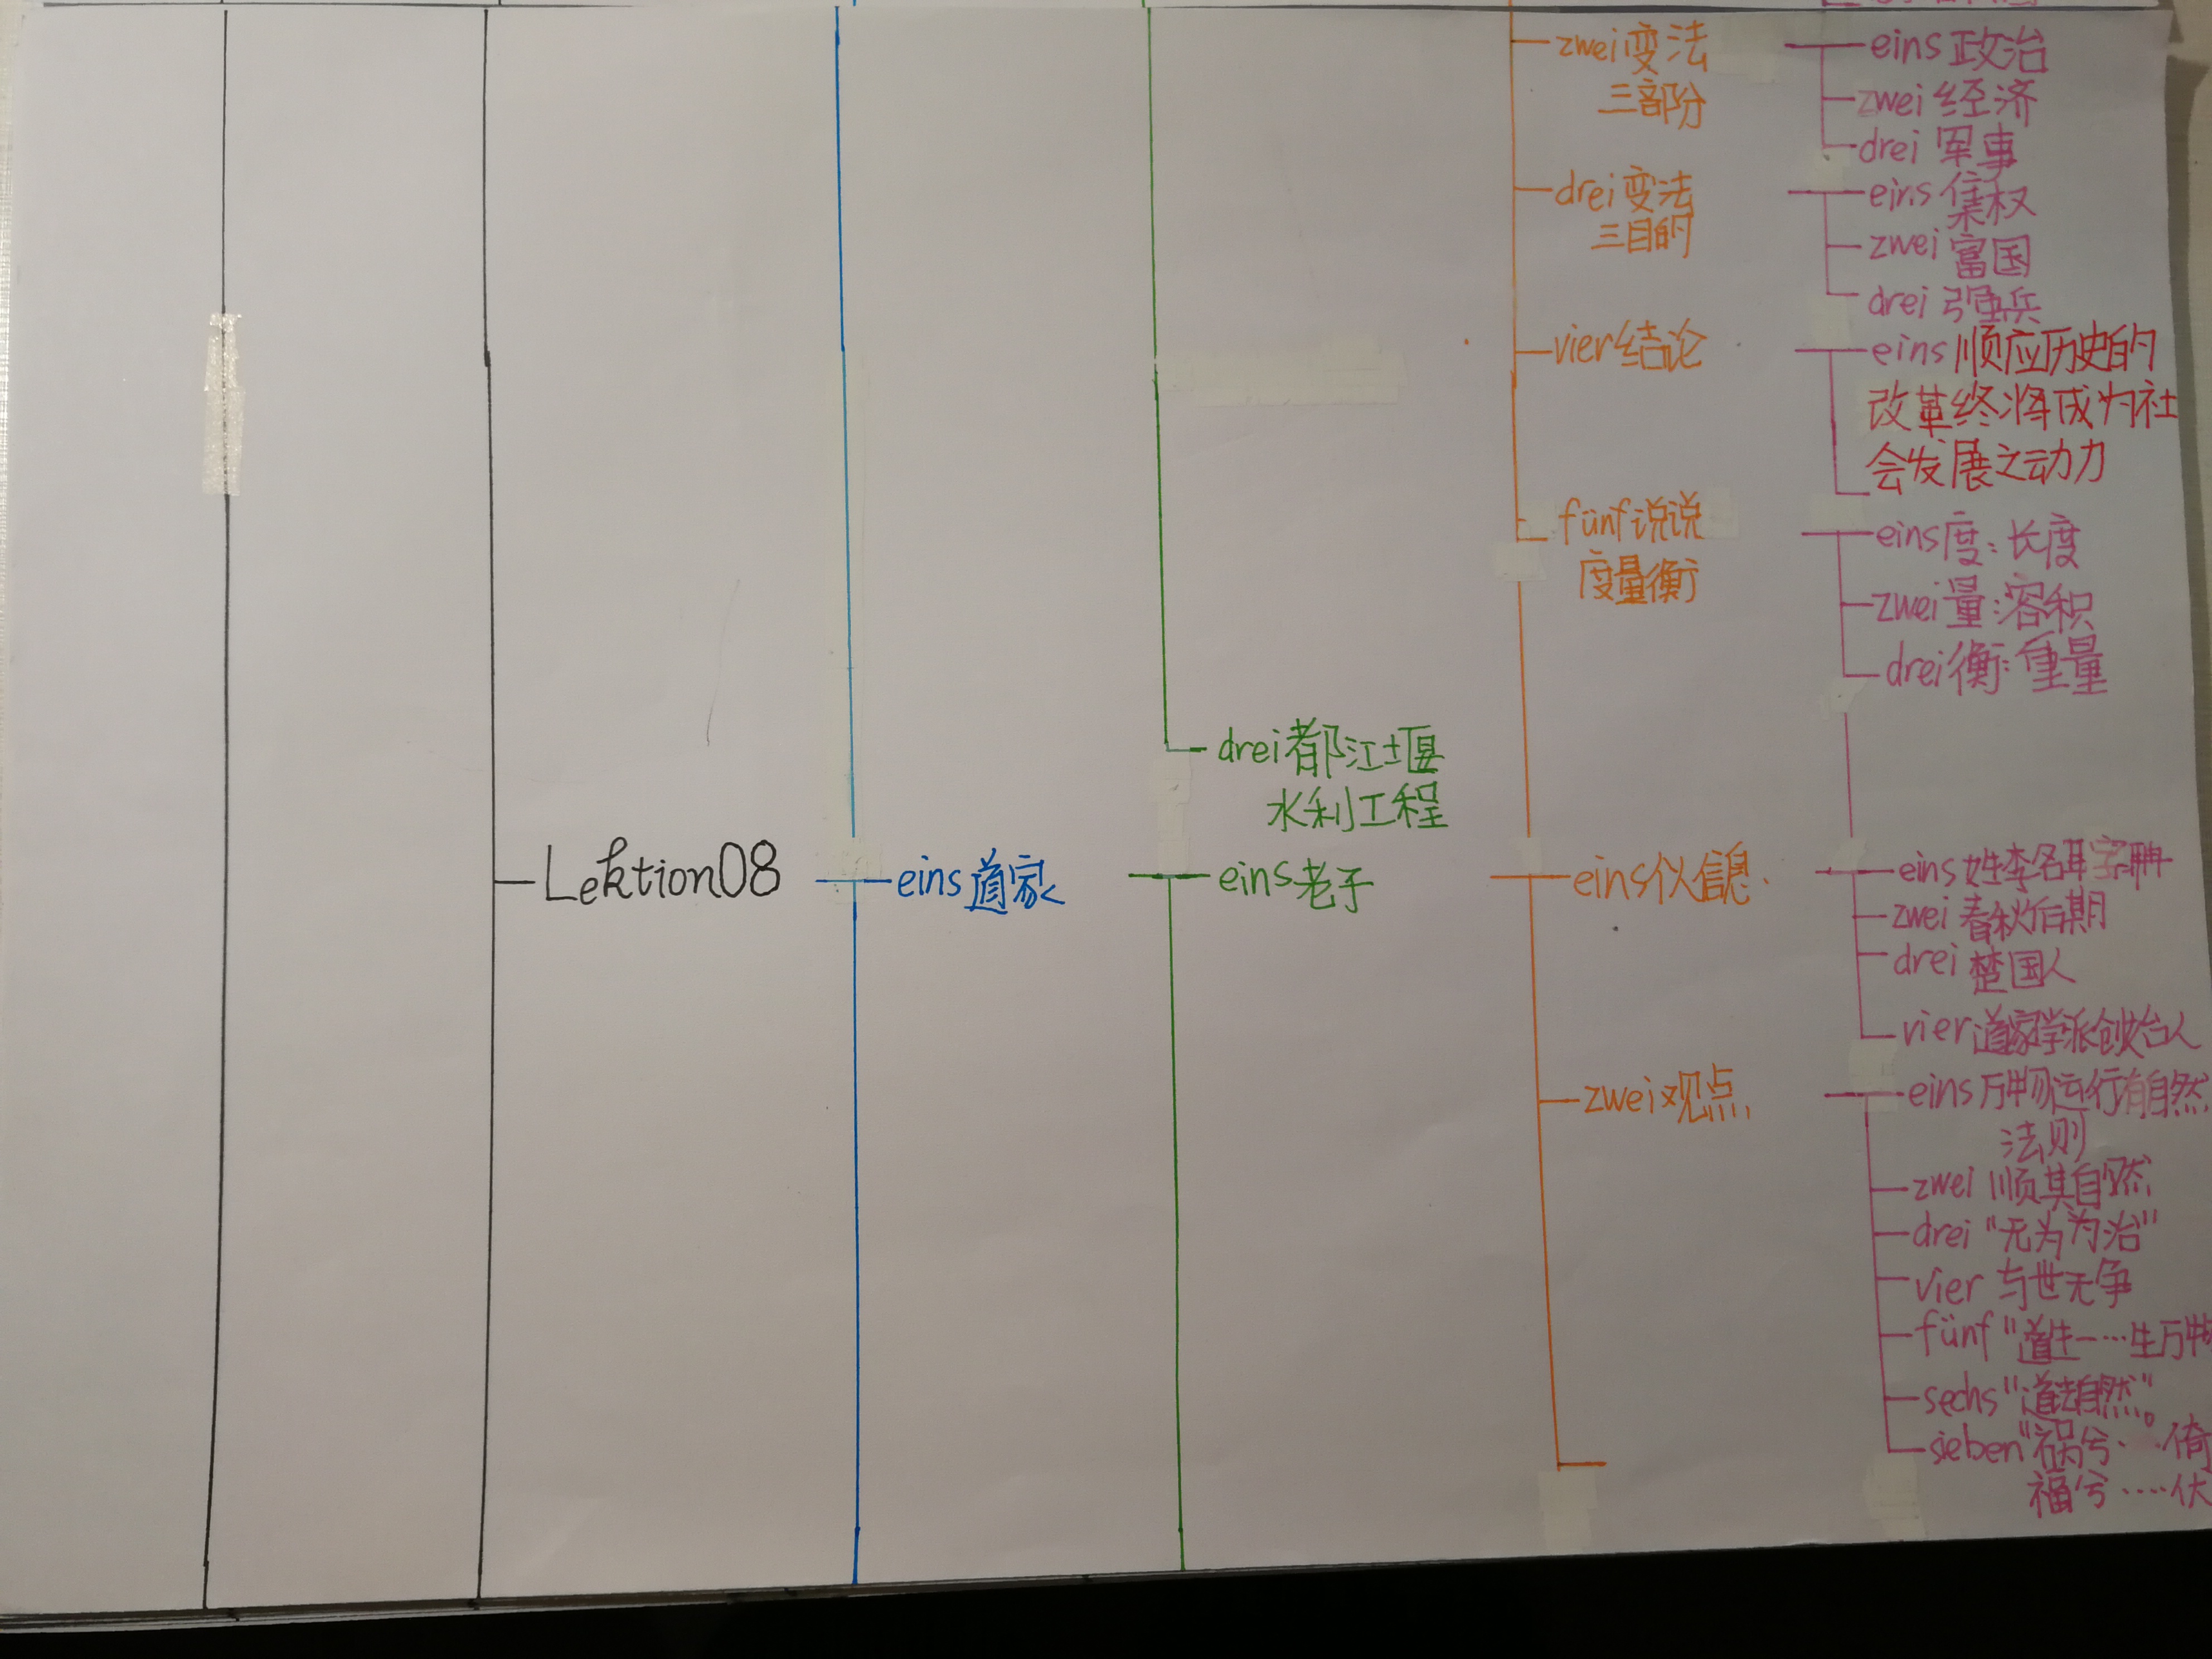 zwei变法
三部分
eins政治
zwei经济
drei 军事
drei变法
三目的
eins集权
zwei富国
drei强兵
vier结论
eins顺应历史的
改革终将成为社
会发展之动力
fünf说说
度量衡
eins度:长度
zwei量:容积
drei衡:重量
drei都江堰
水利工程
Lektion08
eins道家
eins老子
eins信息
eins姓李名耳字聃
zwei春秋后期
drei楚国人
vier道家学派创始人
zwei观点
eins万物运行有自然
法则
zwei顺其自然
drei"无为为治"
vier与世无争
fünf"道生一…生万物
sechs"道法自然"。
sieben"祸兮……倚
福兮……伏